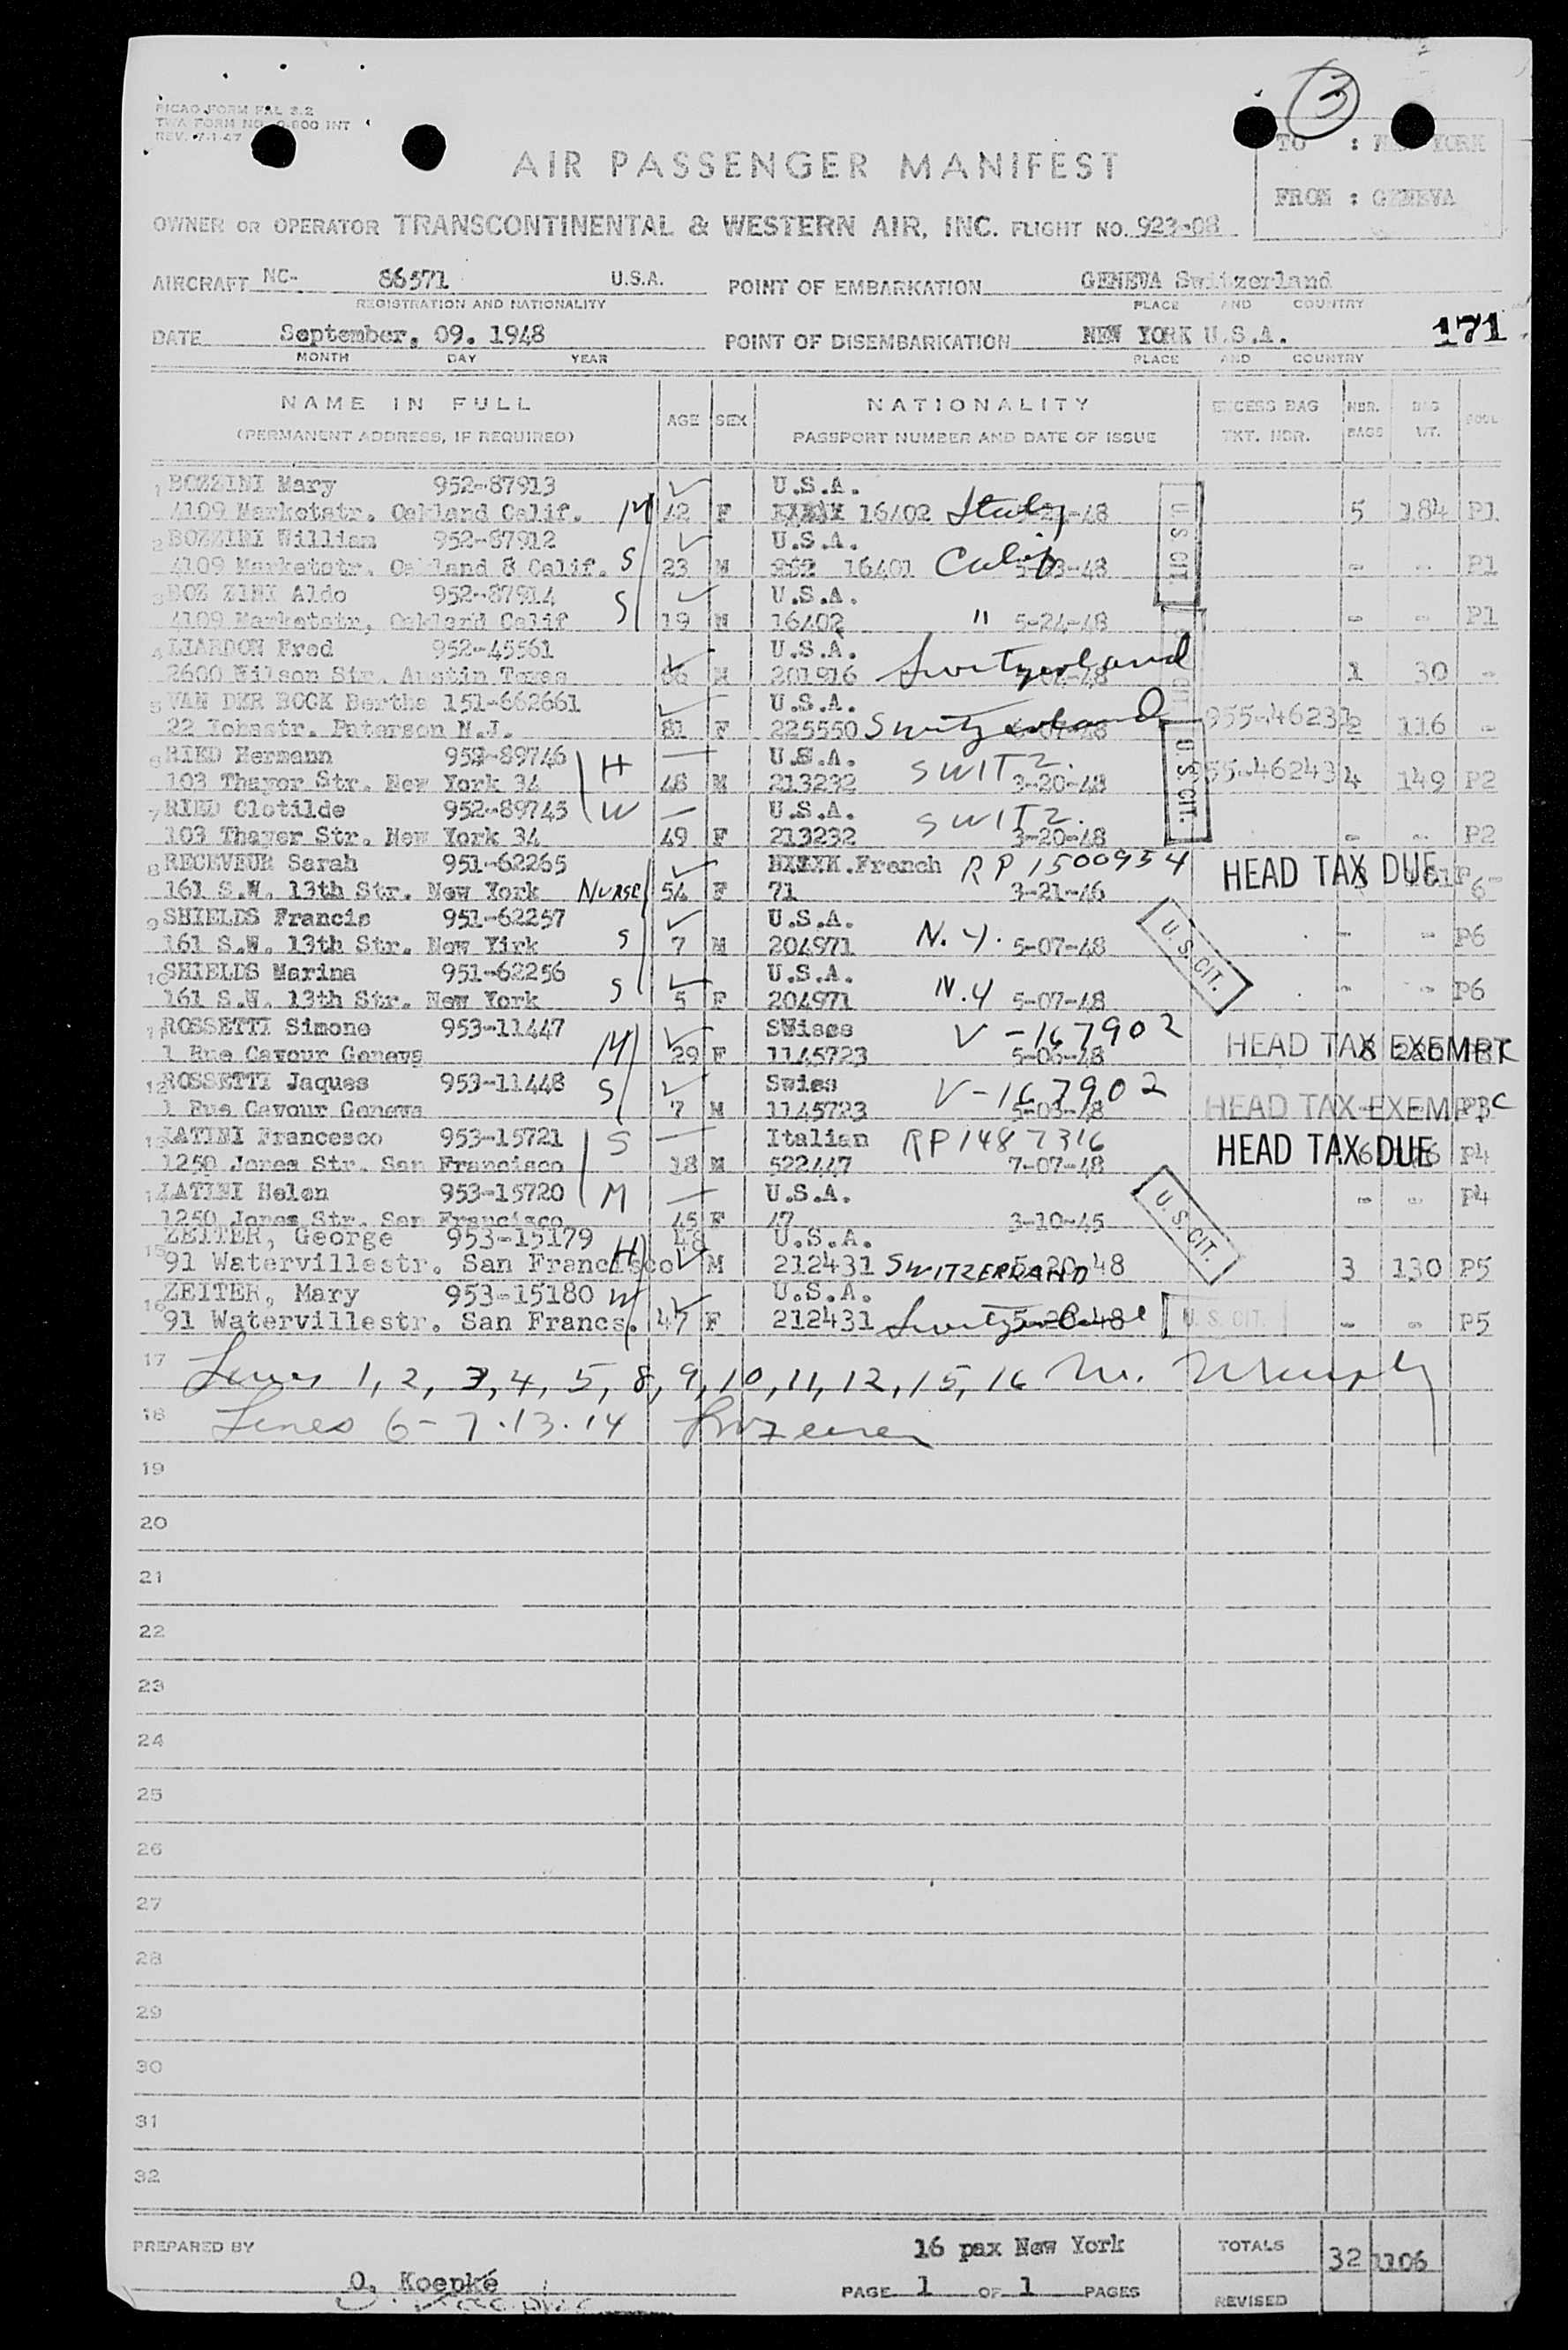 PICAO FORM FAL 3.2
TWA FORM NO. O-800 INT
REV. 7-1-47
3
TO : NEW YORK
FROM : GENEVA
AIR PASSENGER MANIFEST
OWNER OR OPERATOR TRANSCONTINENTAL & WESTERN AIR, INC. FLIGHT NO. 923-08
AIRCRAFT NC- 86571 U.S.A. POINT OF EMBARKATION GENEVA Switzerland
REGISTRATION AND NATIONALITY PLACE AND COUNTRY
DATE September, 09. 1948 POINT OF DISEMBARKATION NEW YORK U.S.A. 171
MONTH DAY YEAR PLACE AND COUNTRY
NAME IN FULL AGE SEX NATIONALITY EXCESS BAG NBR. BAG POOL
(PERMANENT ADDRESS, IF REQUIRED) PASSPORT NUMBER AND DATE OF ISSUE TKT. NBR. BAGS WT.
1 BOZZINI Mary 952-87913 U.S.A.
4109 Marketstr. Oakland Calif. M 42 F 16402 Italy -48 U S CIT. 5 184 P1
2 BOZZINI William 952-87912 U.S.A.
4109 Marketstr. Oakland 8 Calif. S 23 M 16401 Calif -48 - - P1
3 BOZ ZINI Aldo 952-87914 U.S.A.
4109 Marketstr, Oakland Calif S 19 M 16402 " 5-24-48 - - P1
4 LIARDON Fred 952-45561 U.S.A.
2600 Wilson Str. Austin Texas 66 M 201916 Switzerland -48 1 30 -
5 VAN DER BOCK Berthe 151-662661 U.S.A.
22 Iohnstr. Paterson N.J. 81 F 225550 Switzerland -48 955-46231 2 116 -
6 RIED Hermann 952-89746 H U.S.A. SWITZ.
103 Thayer Str. New York 34 48 M 213232 3-20-48 U S CIT. 955-46243 4 149 P2
7 RIED Clotilde 952-89745 W U.S.A. SWITZ.
103 Thayer Str. New York 34 49 F 213232 3-20-48 - - P2
8 RECEVEUR Sarah 951-62265 French RP 1500954 HEAD TAX DUE
161 S.W. 13th Str. New York NURSE 54 F 71 3-21-46 P6
9 SHIELDS Francis 951-62257 U.S.A. N.Y.
161 S.W. 13th Str. New Yirk S 7 M 204971 5-07-48 U.S. CIT. - - P6
10 SHIELDS Marina 951-62256 U.S.A. N.Y
161 S.W. 13th Str. New York S 5 F 204971 5-07-48 - - P6
11 ROSSETTI Simone 953-11447 Swiss V-167902
1 Rue Cavour Geneva M 29 F 1145723 5-06-48 HEAD TAX EXEMPT
12 ROSSETTI Jaques 953-11448 Swiss V-167902
1 Rue Cavour Geneva S 7 M 1145723 5-03-48 HEAD TAX EXEMPT
13 LATINI Francesco 953-15721 S Italian RP 1487316
1250 Jones Str. San Francisco 18 M 522447 7-07-48 HEAD TAX DUE P4
14 LATINI Helen 953-15720 M U.S.A. - - P4
1250 Jones Str. San Francisco 45 F 47 3-10-45 U.S. CIT.
15 ZEITER, George 953-15179 H 48 U.S.A.
91 Watervillestr. San Francisco M 212431 SWITZERLAND 5-20-48 3 130 P5
16 ZEITER, Mary 953-15180 W U.S.A.
91 Watervillestr. San Francs. 47 F 212431 Switzerland 5-20-48 U.S. CIT. - - P5
17 Lines 1, 2, 3, 4, 5, 8, 9, 10, 11, 12, 15, 16 M. Murphy
18 Lines 6-7.13.14
19
20
21
22
23
24
25
26
27
28
29
30
31
32
PREPARED BY 16 pax New York TOTALS 32 1106
O. Koepke PAGE 1 OF 1 PAGES REVISED